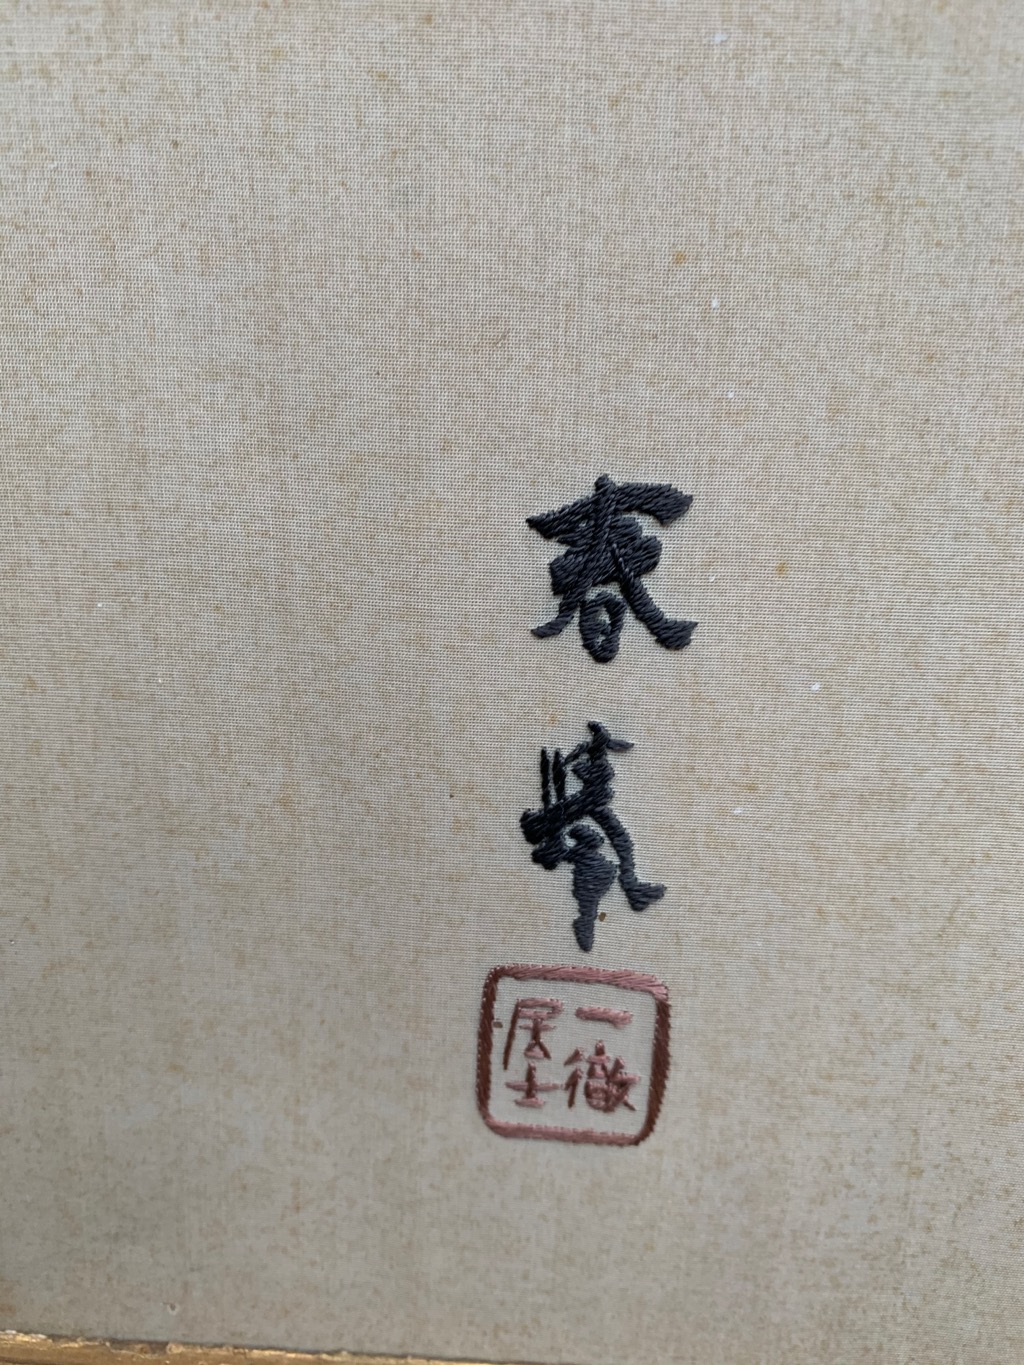 春舉
一徹
居士